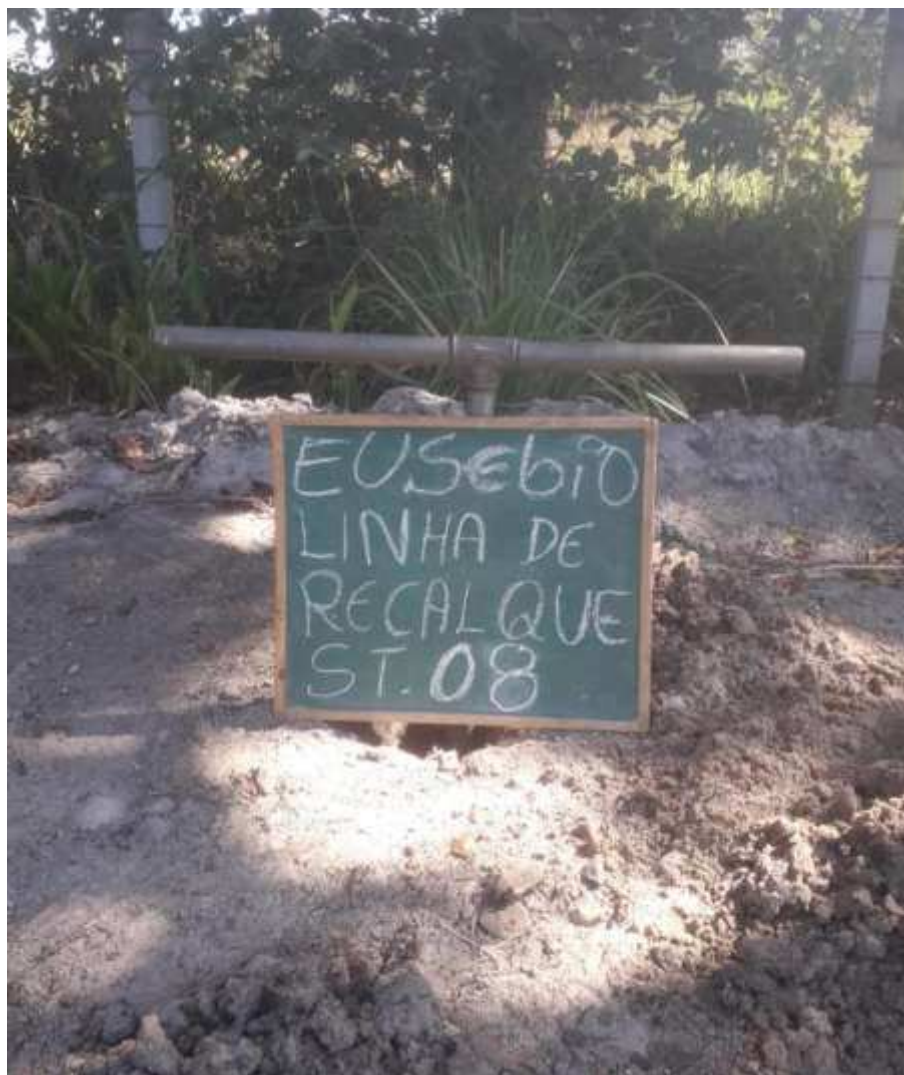 EUSEbiO
LINHA DE
RECALQUE
ST. 08